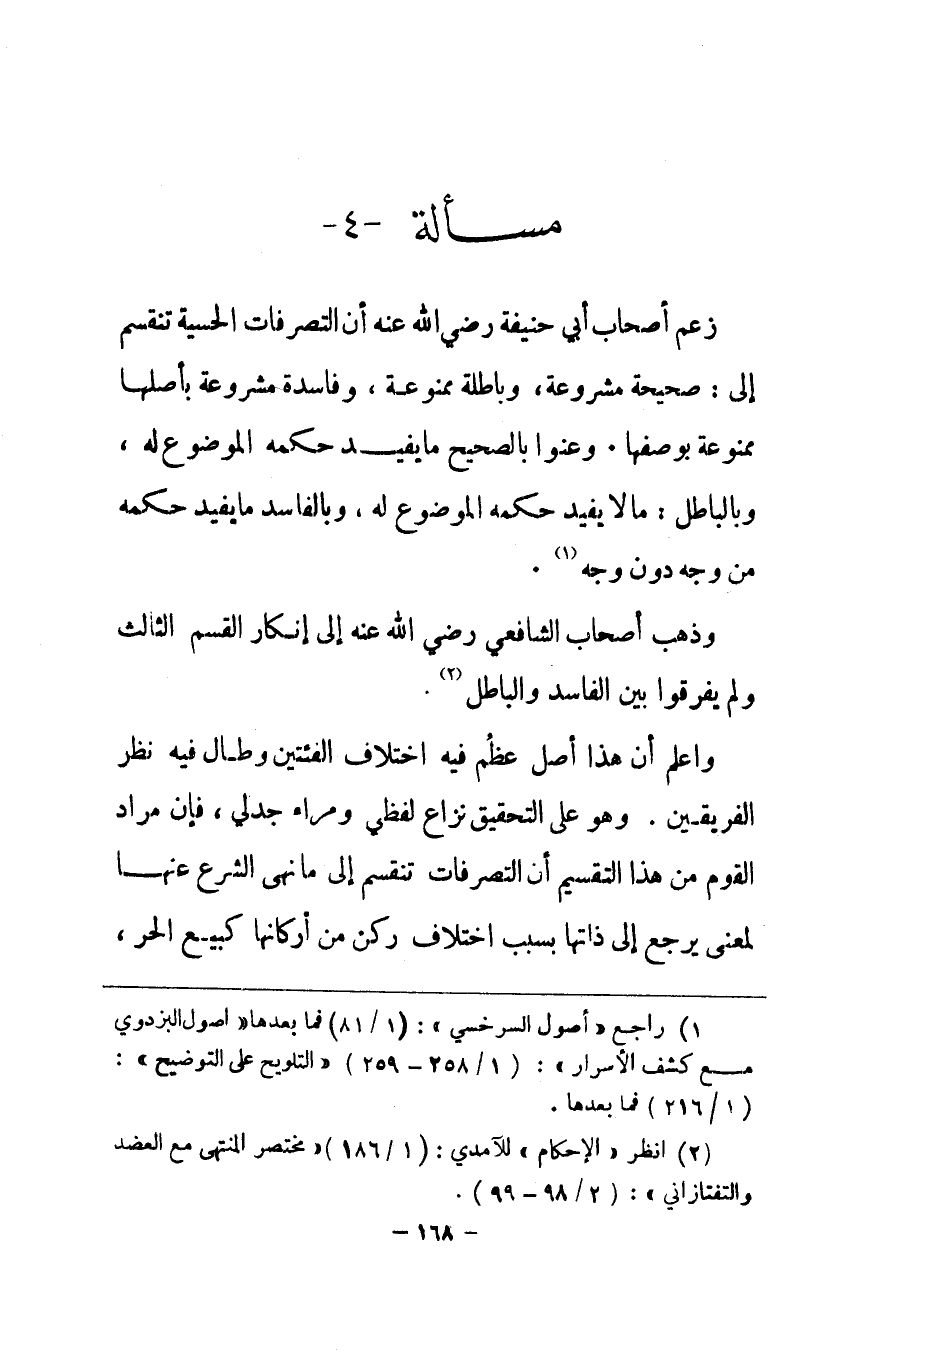 مسألة -٤-
زعم أصحاب أبي حنيفة رضي الله عنه أن التصرفات الحسية تنقسم
إلى : صحيحة مشروعة، وباطلة ممنوعة ، وفاسدة مشروعة بأصلها
ممنوعة بوصفها . وعنوا بالصحيح مايفيد حكمه الموضوع له ،
وبالباطل : مالا يفيد حكمه الموضوع له ، وبالفاسد مايفيد حكمه
من وجه دون وجه (١) .
وذهب أصحاب الشافعي رضي الله عنه إلى إنكار القسم الثالث
ولم يفرقوا بين الفاسد والباطل (٢) .
واعلم أن هذا أصل عظُم فيه اختلاف الفئتين وطال فيه نظر
الفريقين . وهو على التحقيق نزاع لفظي ومراء جدلي ، فإن مراد
القوم من هذا التقسيم أن التصرفات تنقسم إلى مانهى الشرع عنها
لمعنى يرجع إلى ذاتها بسبب اختلاف ركن من أركانها كبيع الحر ،
١) راجع « أصول السرخسي » : (١ / ٨١) فما بعدها« اصول البزدوي
مع كشف الأسرار » : ( ١ / ٢٥٨ – ٢٥٩ ) « التلويح على التوضيح » :
( ١ / ٢١٦ ) فما بعدها .
(٢) انظر « الإحكام » للآمدي : ( ١ / ١٨٦ )« مختصر المنتهى مع العضد
والتفتازاني » : ( ٢ / ٩٨ – ٩٩ ) .
– ١٦٨ –